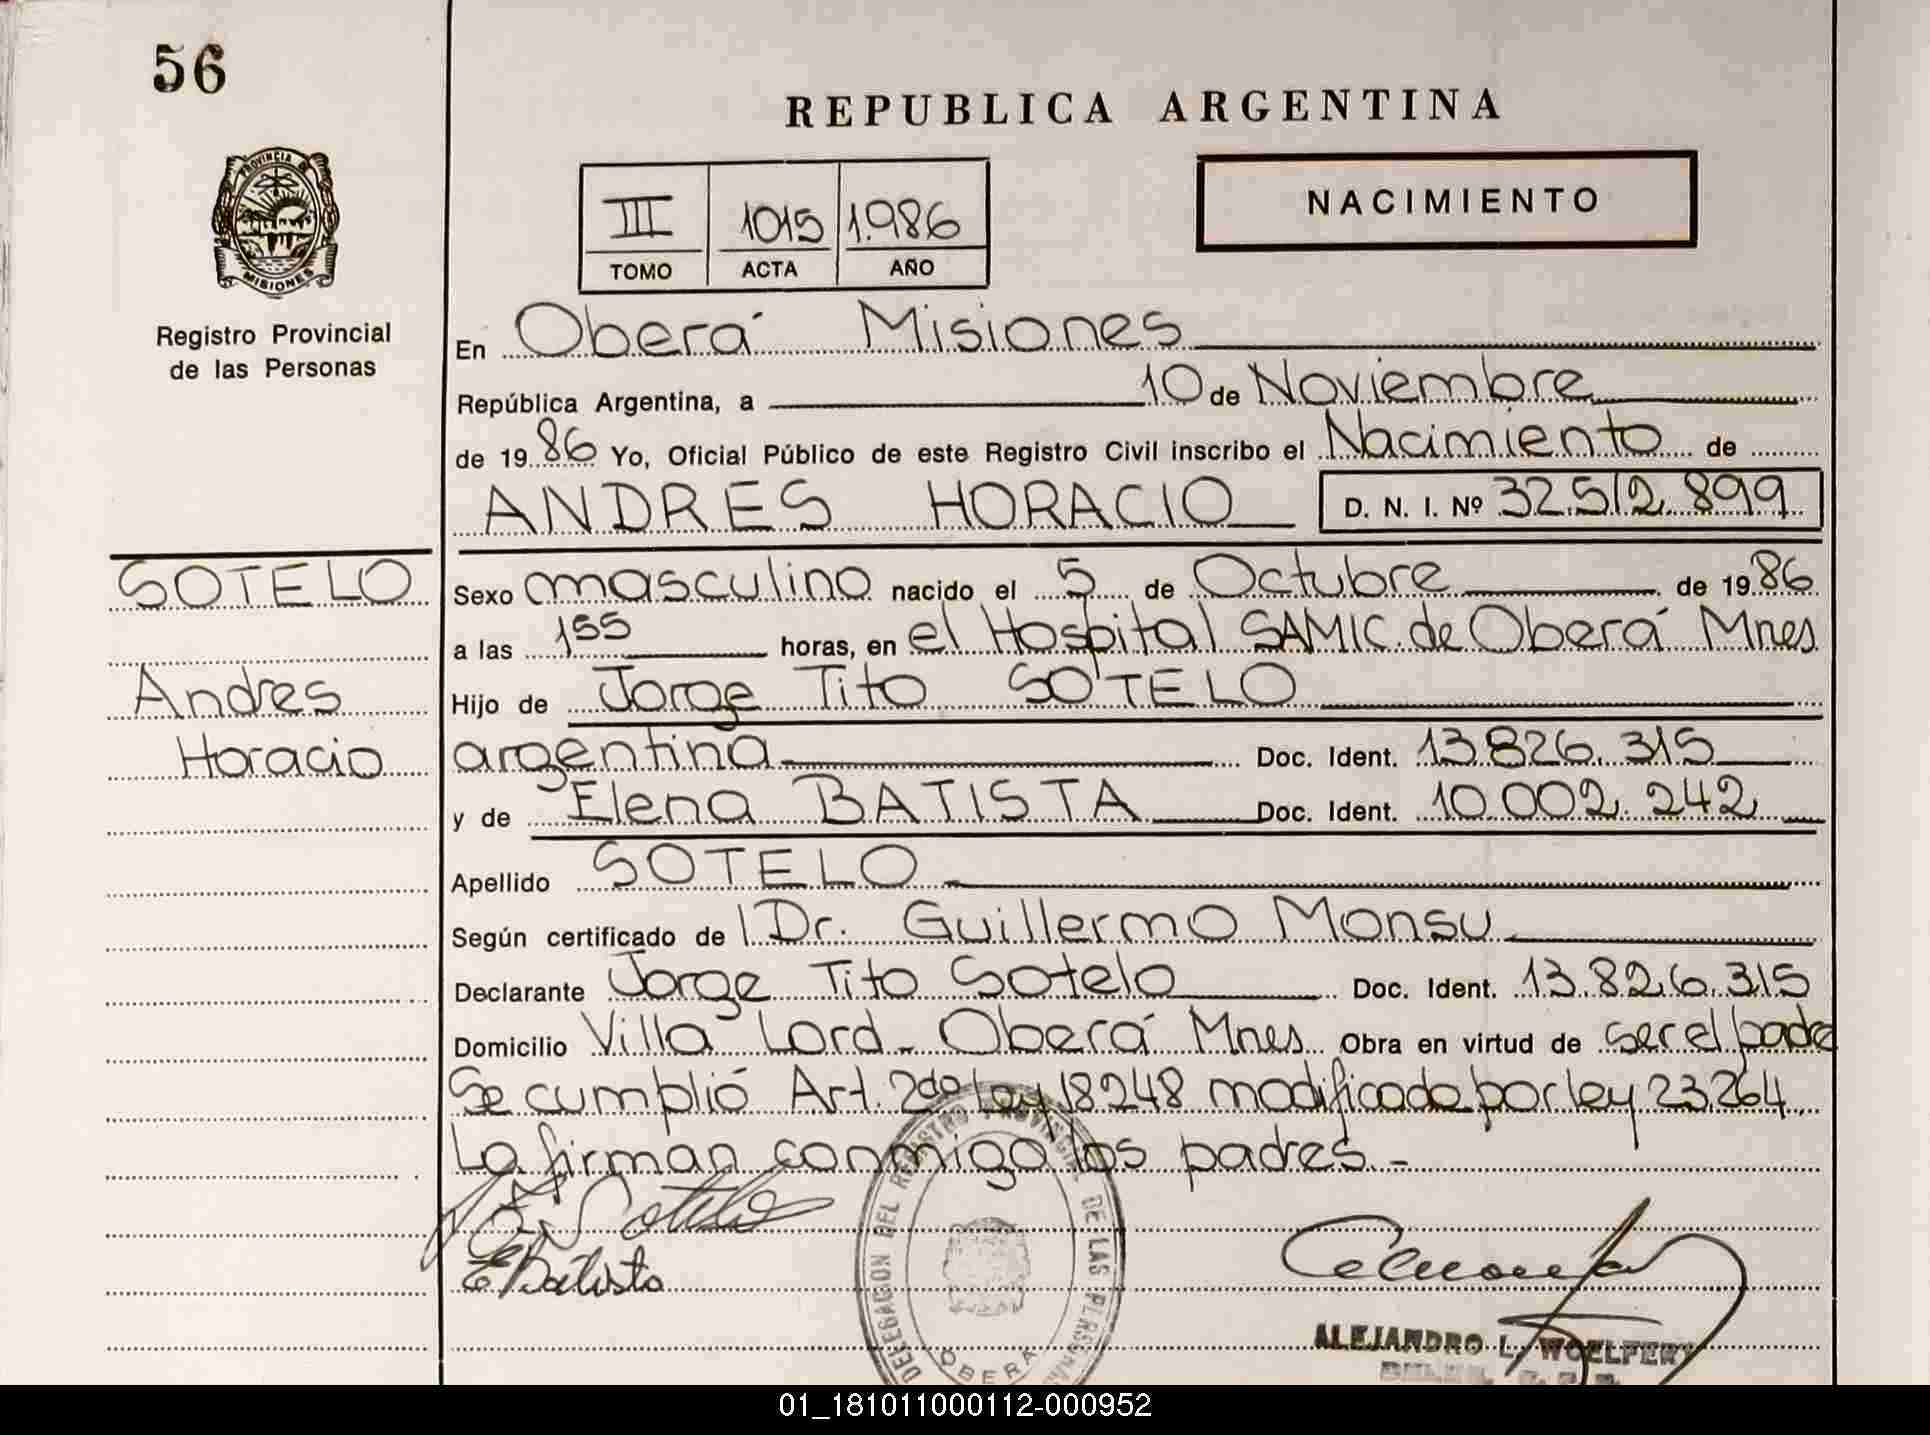 56
REPUBLICA ARGENTINA
PROVINCIA DE
MISIONES
III 1015 1.986
TOMO ACTA AÑO
NACIMIENTO
Registro Provincial
de las Personas
En Oberá Misiones
República Argentina, a 10 de Noviembre
de 1986 Yo, Oficial Público de este Registro Civil inscribo el Nacimiento de
ANDRES HORACIO D. N. I. Nº 32.512.899
SOTELO
Andres
Horacio
Sexo masculino nacido el 5 de Octubre de 1986
a las 155 horas, en el Hospital SAMIC. de Oberá Mnes
Hijo de Jorge Tito SOTELO
argentina Doc. Ident. 13.826.315
y de Elena BATISTA Doc. Ident. 10.002.242
Apellido SOTELO
Según certificado de l Dr. Guillermo Monsu
Declarante Jorge Tito Sotelo Doc. Ident. 13.826.315
Domicilio Villa Lord - Oberá Mnes Obra en virtud de ser el padre
Se cumplió Art. 2do ley 18248 modificada por ley 23.264
La firman conmigo los padres.-
Sotelo
E Batista
DELEGACION DEL REGISTRO PROVINCIAL DE LAS PERSONAS
OBERÁ
ALEJANDRO L. WOELFERT
01_181011000112-000952